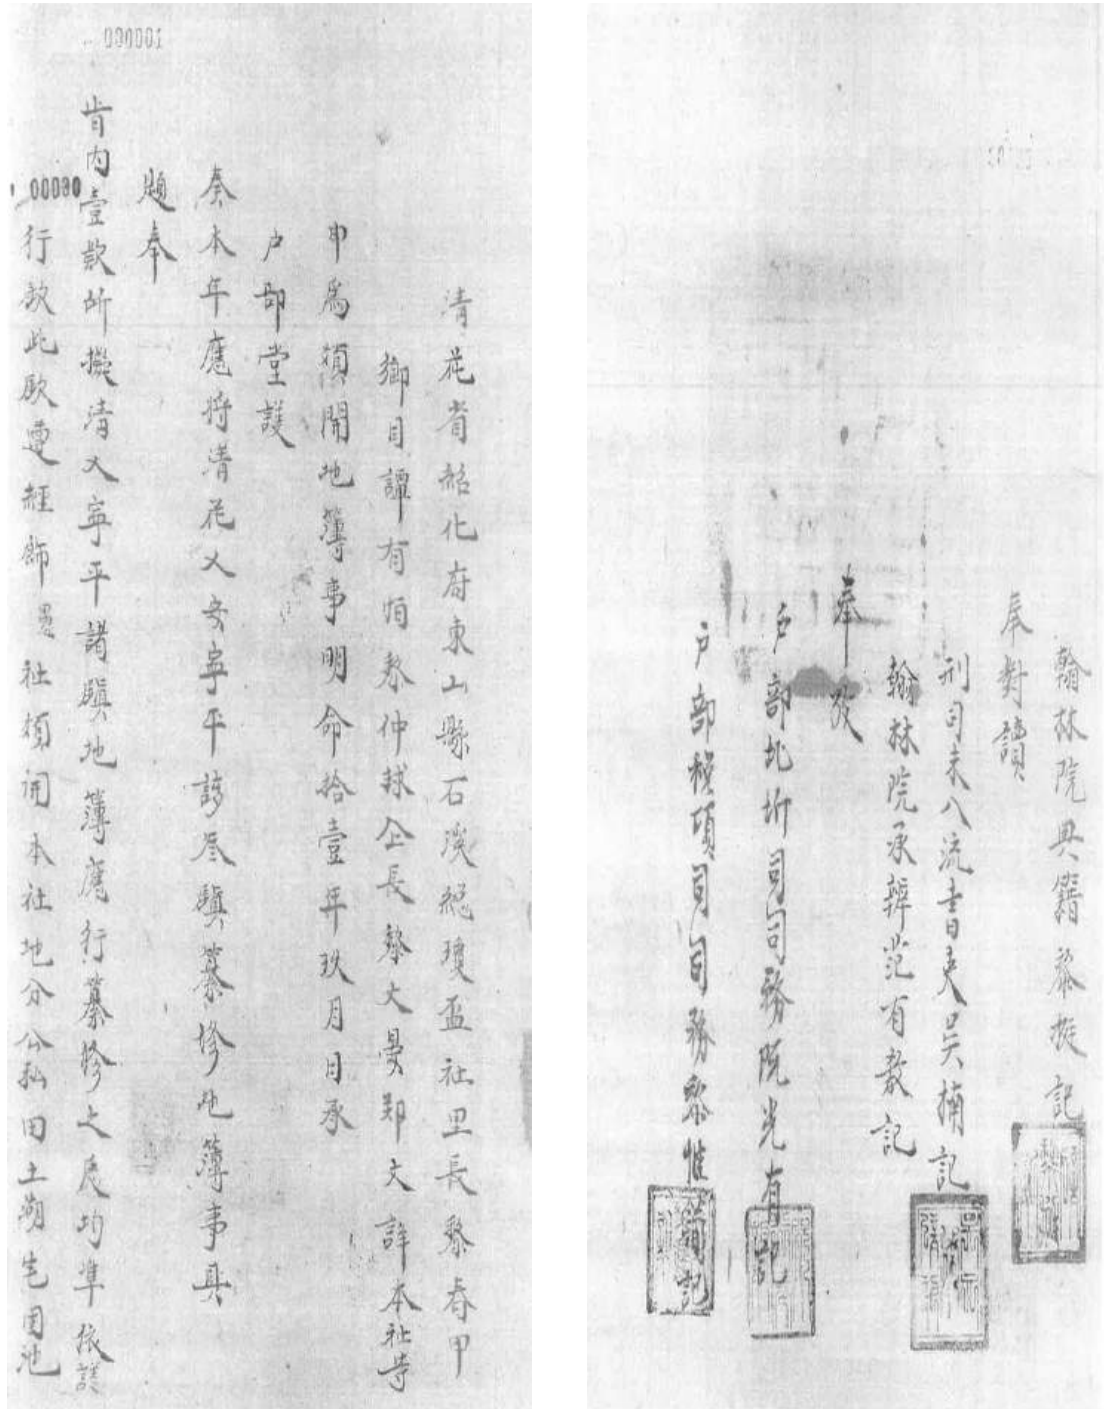 000001
清花省韶化府東山縣石溪總瓊盃社里長黎春甲
鄉目譚有恒黎仲球仝長黎文曼鄭文詳本社等
申爲須開地簿事明命拾壹年玖月日承
户部堂護
奏本年應將清花乂安寧平該叁鎮纂修地簿事具
題奉
旨內壹欵所擬清乂寧平諸鎮地簿應行纂修之處均準依議
行欽此欽遵經飭社須開本社地分公私田土潮宅園池
翰林院典籍黎挺記
奉對讀
刑司未入流書吏吳楠記
翰林院承辦范有教記
奉攷
户部北圻司司務阮光有記
户部稅項司司務黎惟簡記